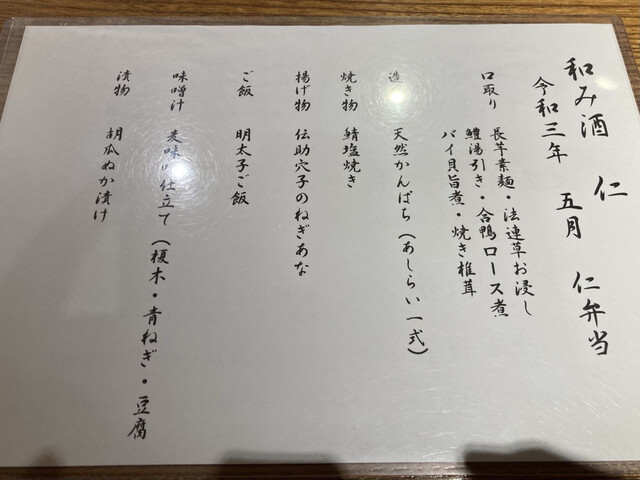 和み酒 仁
令和三年 五月 仁弁当
口取り 長芋素麺・法連草お浸し
鱧湯引き・合鴨ロース煮
バイ貝旨煮・焼き椎茸
造 天然かんぱち(あしらい一式)
焼き物 鯖塩焼き
揚げ物 伝助穴子のねぎあな
ご飯 明太子ご飯
味噌汁 麦味 仕立て(榎木・青ねぎ・豆腐
漬物 胡瓜ぬか漬け